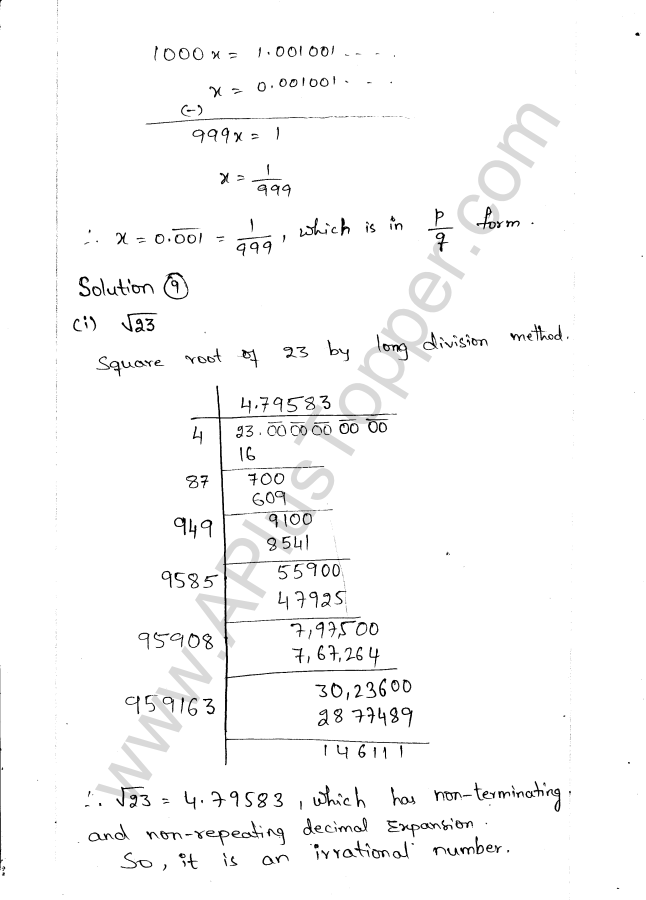 1000x = 1.001001 - - - .
x = 0.001001 - - .
(-)
999x = 1
x = 1/999
∴ x = 0.\overline{001} = 1/999, which is in p/q form.
Solution ⑨
(i) √23
Square root of 23 by long division method.
4.79583
4 23.00 00 00 00 00
16
87 700
609
949 9100
8541
9585 55900
47925
95908 7,97,500
7,67,264
959163 30,23600
2877489
146111
∴ √23 = 4.79583, which has non-terminating
and non-repeating decimal Expansion.
So, it is an irrational number.
www.APlusTopper.com